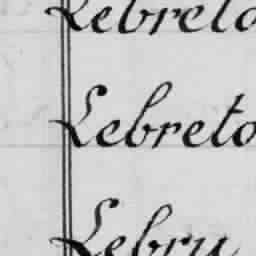 Lebreto
Lebreto
Lebru